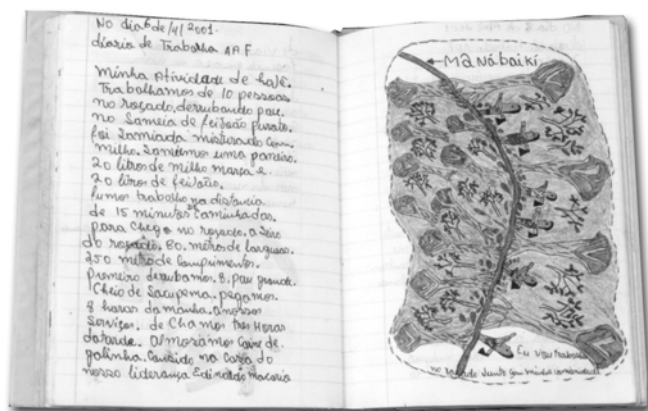 No dia 6 de /4/ 2001.
diário de Trabalho AAF
Minha Atividade de hoje.
Trabalhamos de 10 pessoas
no roçado, derrubando pau.
no Sameia de feijoão
foi Samiada misturado com
milho. uma paneiro.
20 litros de milho marsa e
20 litros de feijoão.
fumos trabalho na distancia
de 15 minutos caminhadas.
para chego no roçado. a Seiro
do roçado. 80. metros de larguras.
250 metro de Comprimentos.
Promeiro derubamos. 8. pau grande.
Cheio de Sacupema. pegamos.
8 horas da manha. a nosso
Serviços. de Chamos tres Horas
datarde. almosamos Carne de.
galinha. Cousido na Casa do
nosso liderança Edinaldo Macario
Manãbaiki
Eu vizu trabalha
no junto com minha comunidade